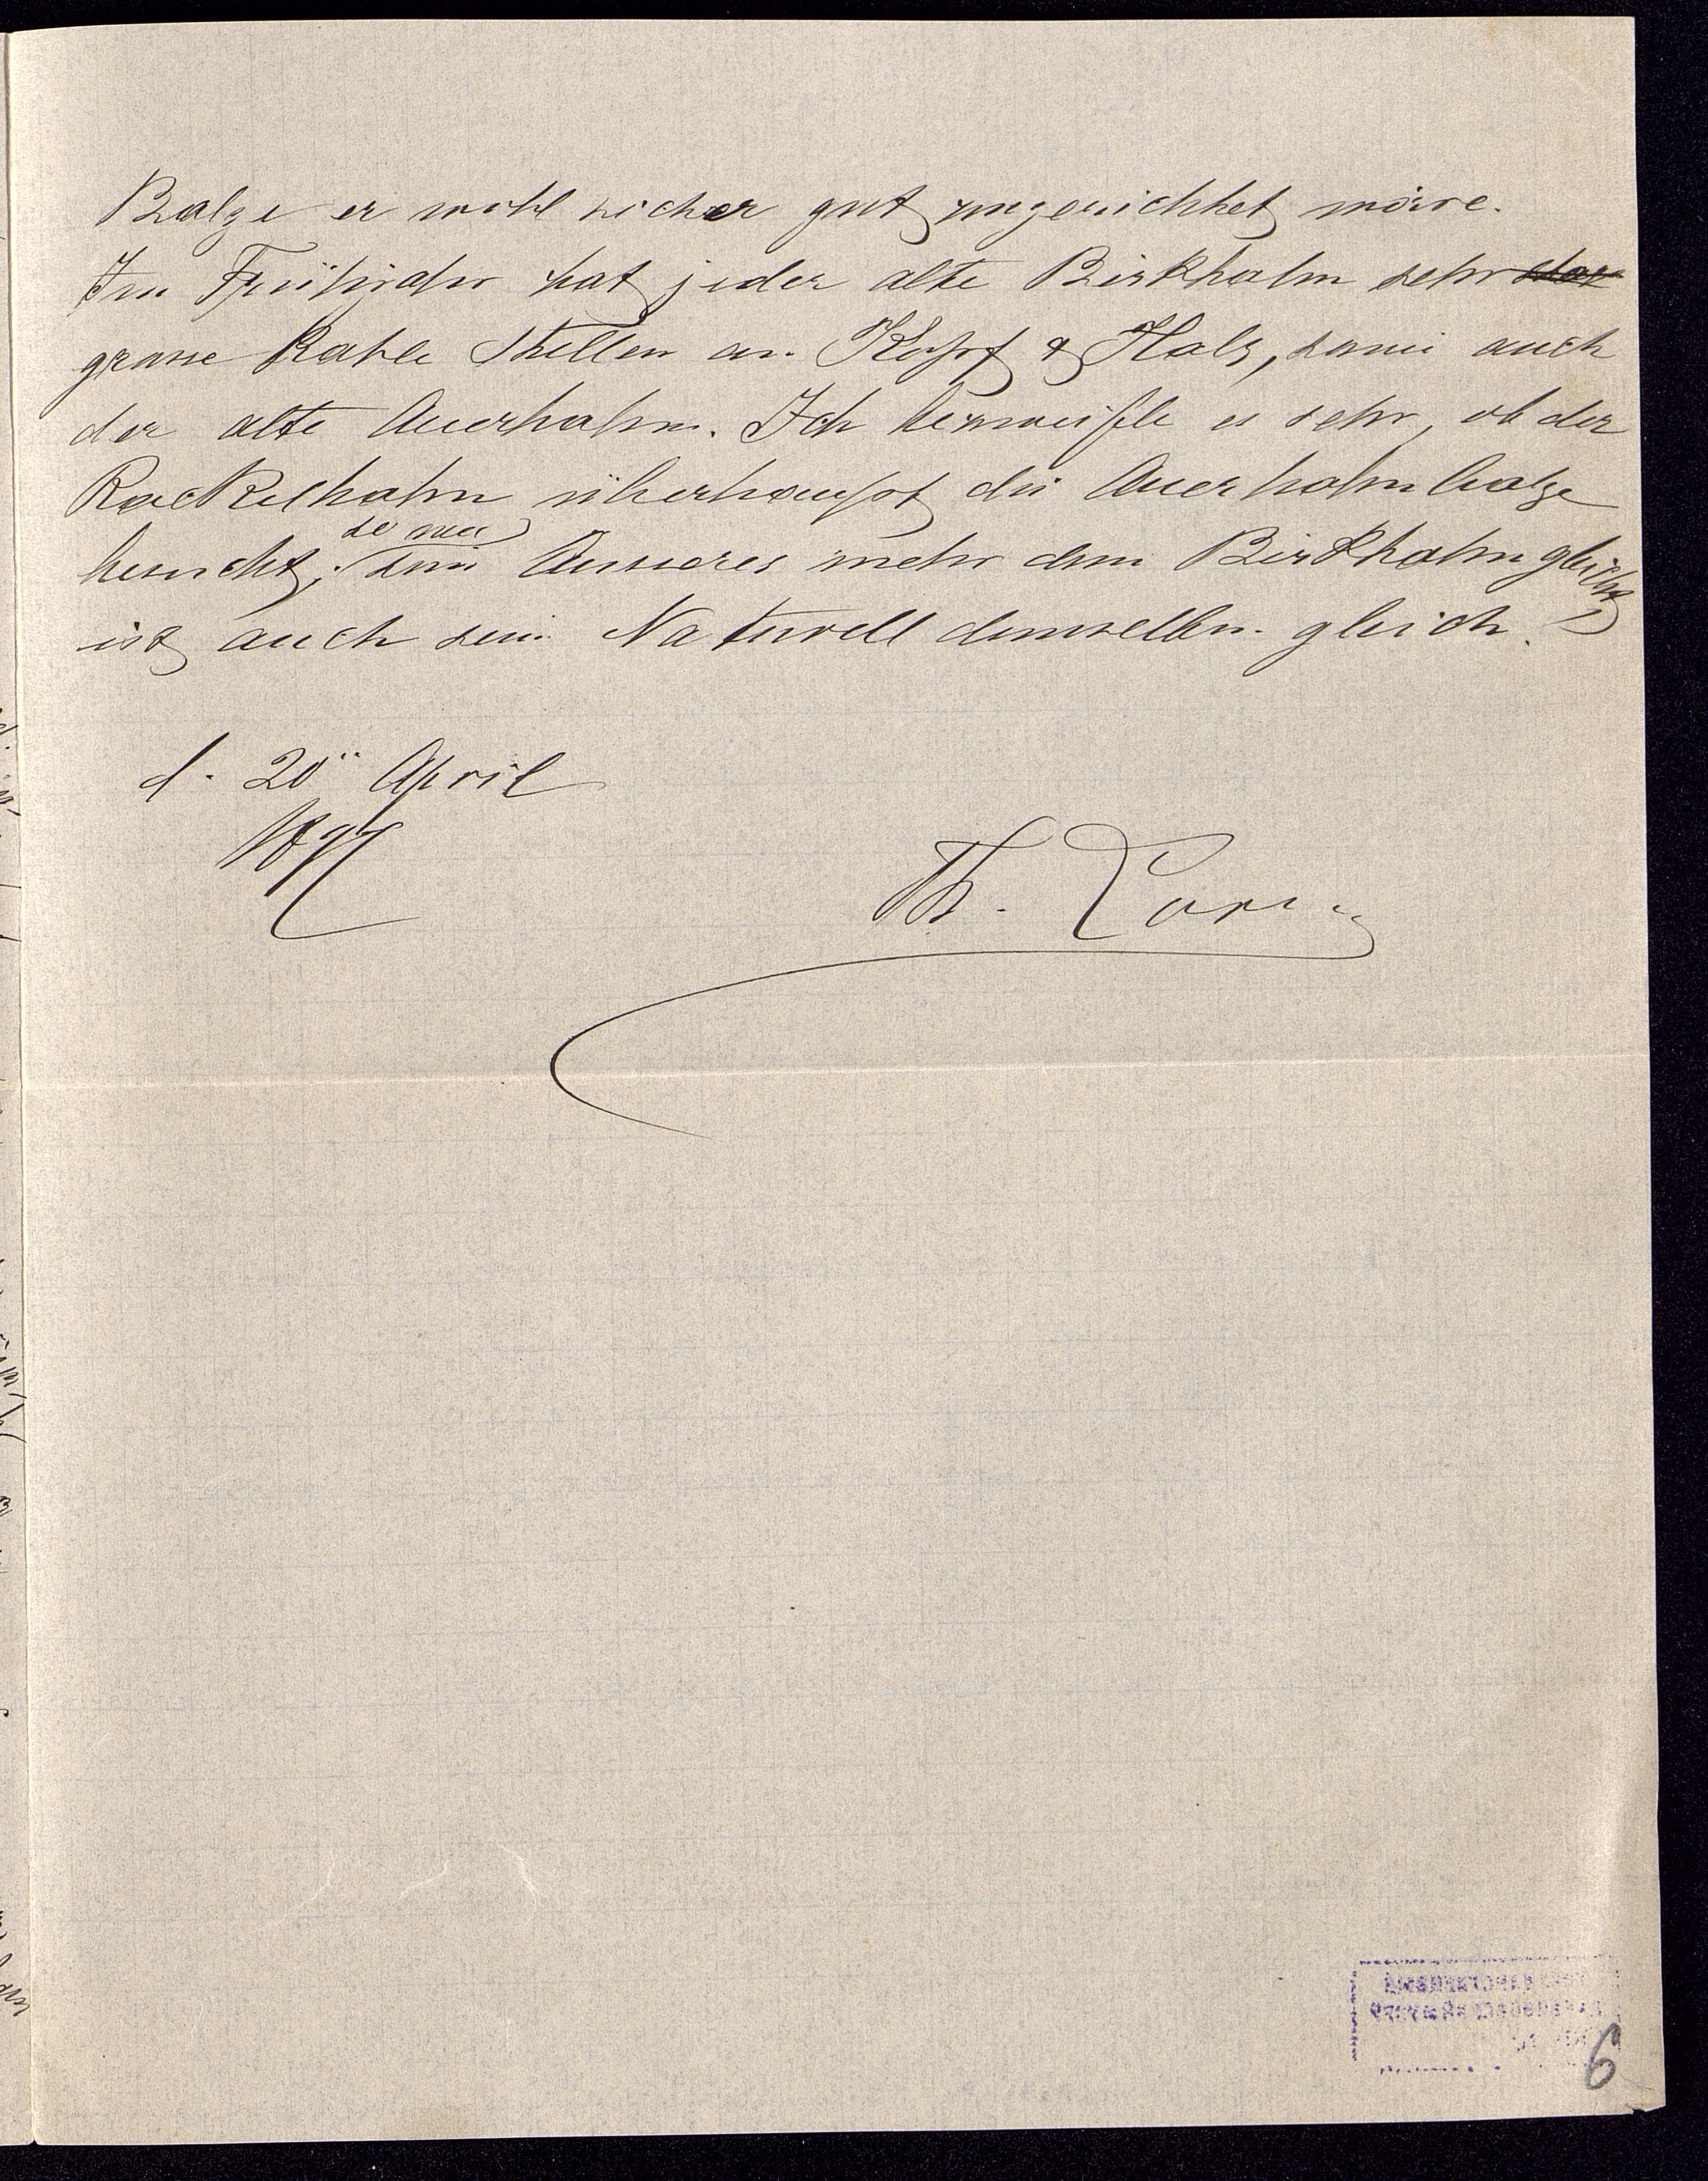 Balze er wohl sicher gut zugerichtet wäre.
Im Frühjahr hat jeder alte Birkhahn sehr
grosse kahle Stellen an Kopf & Hals, sowie auch
der alte Auerhahn. Ich bezweifle es sehr, ob der
Rackelhahn überhaupt die Auerhahnbalze
besucht; so wie sein Äusseres mehr dem Birkhahn gleicht,
ist auch sein Naturell demselben gleich.
d. 20 April
Th. Lorenz
6